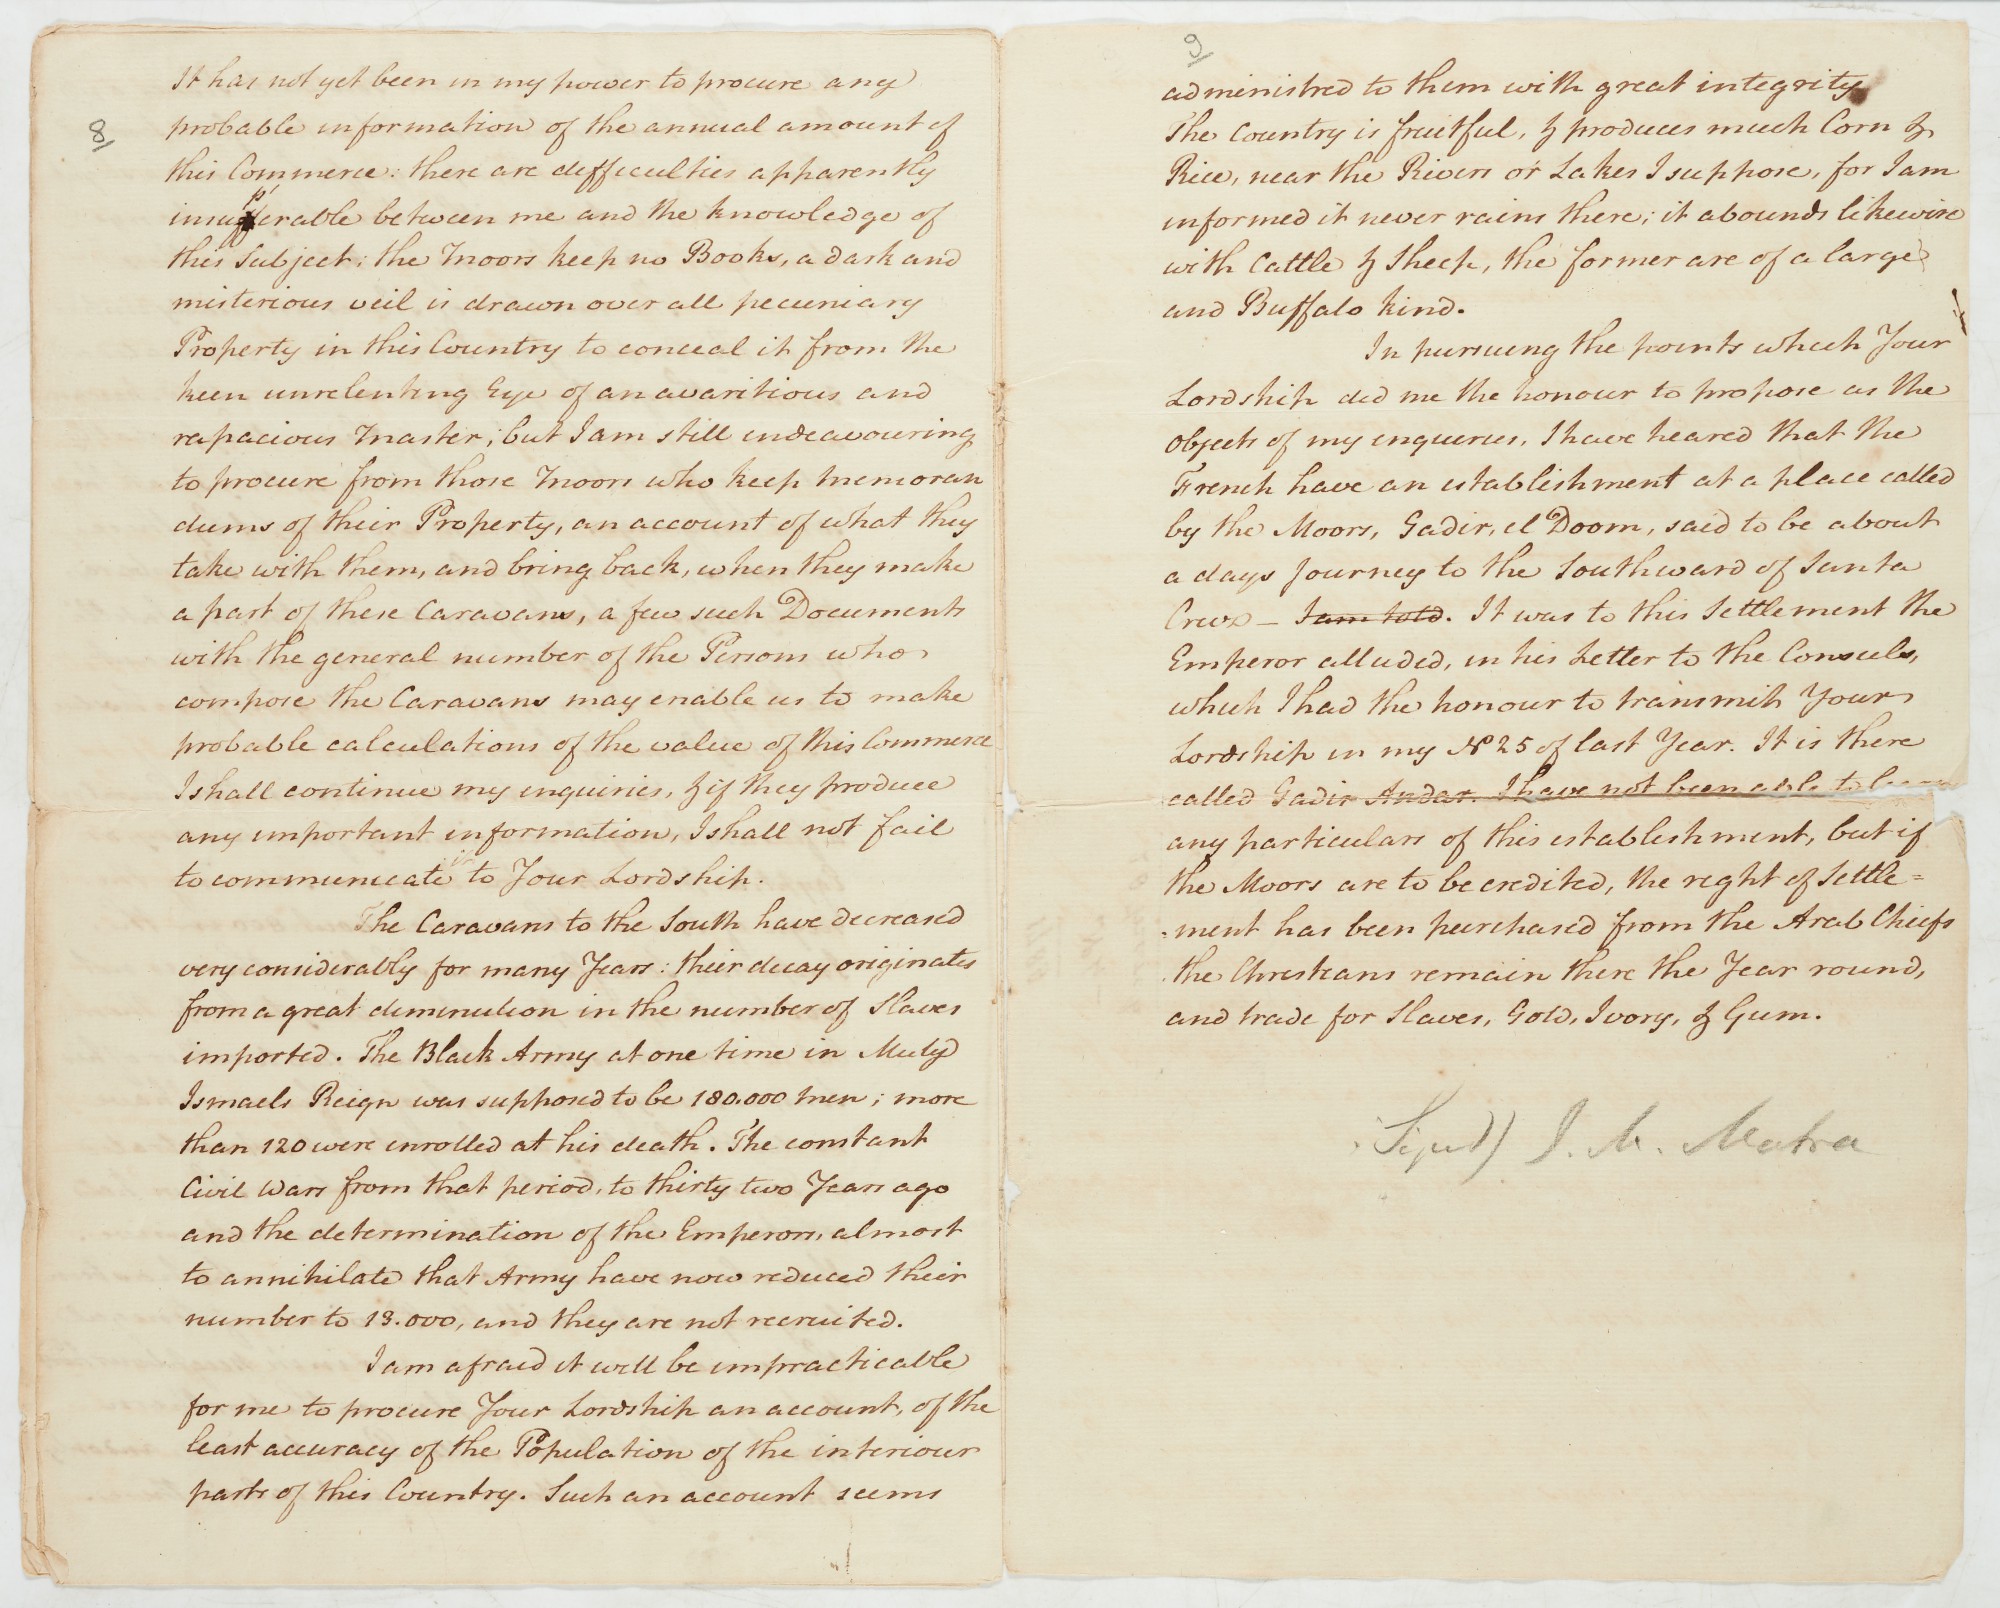 8
It has not yet been in my power to procure any
probable information of the annual amount of
this Commerce: there are difficulties apparently
insuperable between me and the knowledge of
this Subject; the Moors keep no Books, a dark and
misterious veil is drawn over all pecuniary
Property in this Country to conceal it from the
keen unrelenting Eye of an avaritious and
rapacious Master; but I am still endeavouring
to procure from those Moors who keep Memoran
dums of their Property, an account of what they
take with them, and bring back, when they make
a part of these Caravans, a few such Documents
with the general number of the Persons who
compose the Caravans may enable us to make
probable calculations of the value of this Commerce
I shall continue my enquiries, & if they produce
any important information, I shall not fail
to communicate to Your Lordship.
The Caravans to the South have decreased
very considerably for many Years: their decay originates
from a great diminution in the number of Slaves
imported. The Black Army at one time in Muly
Ismaels Reign was supposed to be 180.000 men; more
than 120 were enrolled at his death. The constant
Civil Wars from that period, to thirty two Years ago
and the determination of the Emperors, almost
to annihilate that Army have now reduced their
number to 18.000, and they are not recruited.
I am afraid it will be impracticable
for me to procure Your Lordship an account, of the
least accuracy of the Population of the interiour
parts of this Country. Such an account seems
9
administred to them with great integrity
The Country is fruitful, & produces much Corn &
Rice, near the Rivers or Lakes I suppose, for I am
informed it never rains there; it abounds likewise
with Cattle & Sheep, the former are of a large
and Buffalo kind.
In pursuing the points which Your
Lordship did me the honour to propose as the
objects of my enqueries, I have heared that the
French have an establishment at a place called
by the Moors, Gadir, el Doom, said to be about
a days Journey to the Southward of Santa
Cruz – I am told. It was to this Settlement the
Emperor alluded, in his Letter to the Consuls,
which I had the honour to transmit Your
Lordship in my No 25 of last Year. It is there
called Gadir Andar. I have not been able to
any particulars of this establishment, but if
the Moors are to be credited, the right of Settle=
=ment has been purchased from the Arab Chiefs
the Christians remain there the Year round,
and trade for Slaves, Gold, Ivory, & Gum.
Signd) J. M. Matra